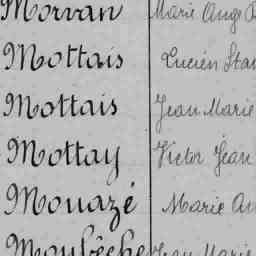 Morvan Marie Ange
Mottais Lucien Stan
Mottais Jean Marie
Mottay Victor Jean
Mouazé Marie An
Moubêche Jean Marie